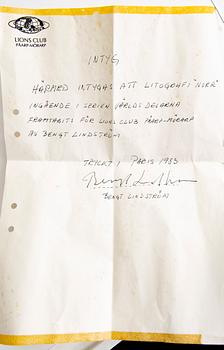 LIONS CLUB
PÅARP-MÖRARP
INTYG
HÄRMED INTYGAS ATT LITOGRAFI
INGÅENDE I SERIEN VÄRLDSDELARNA
FRAMTAGITS FÖR LIONS CLUB PÅARP-MÖRARP
AV BENGT LINDSTRÖM
TRYCKT I PARIS 1983
BENGT LINDSTRÖM